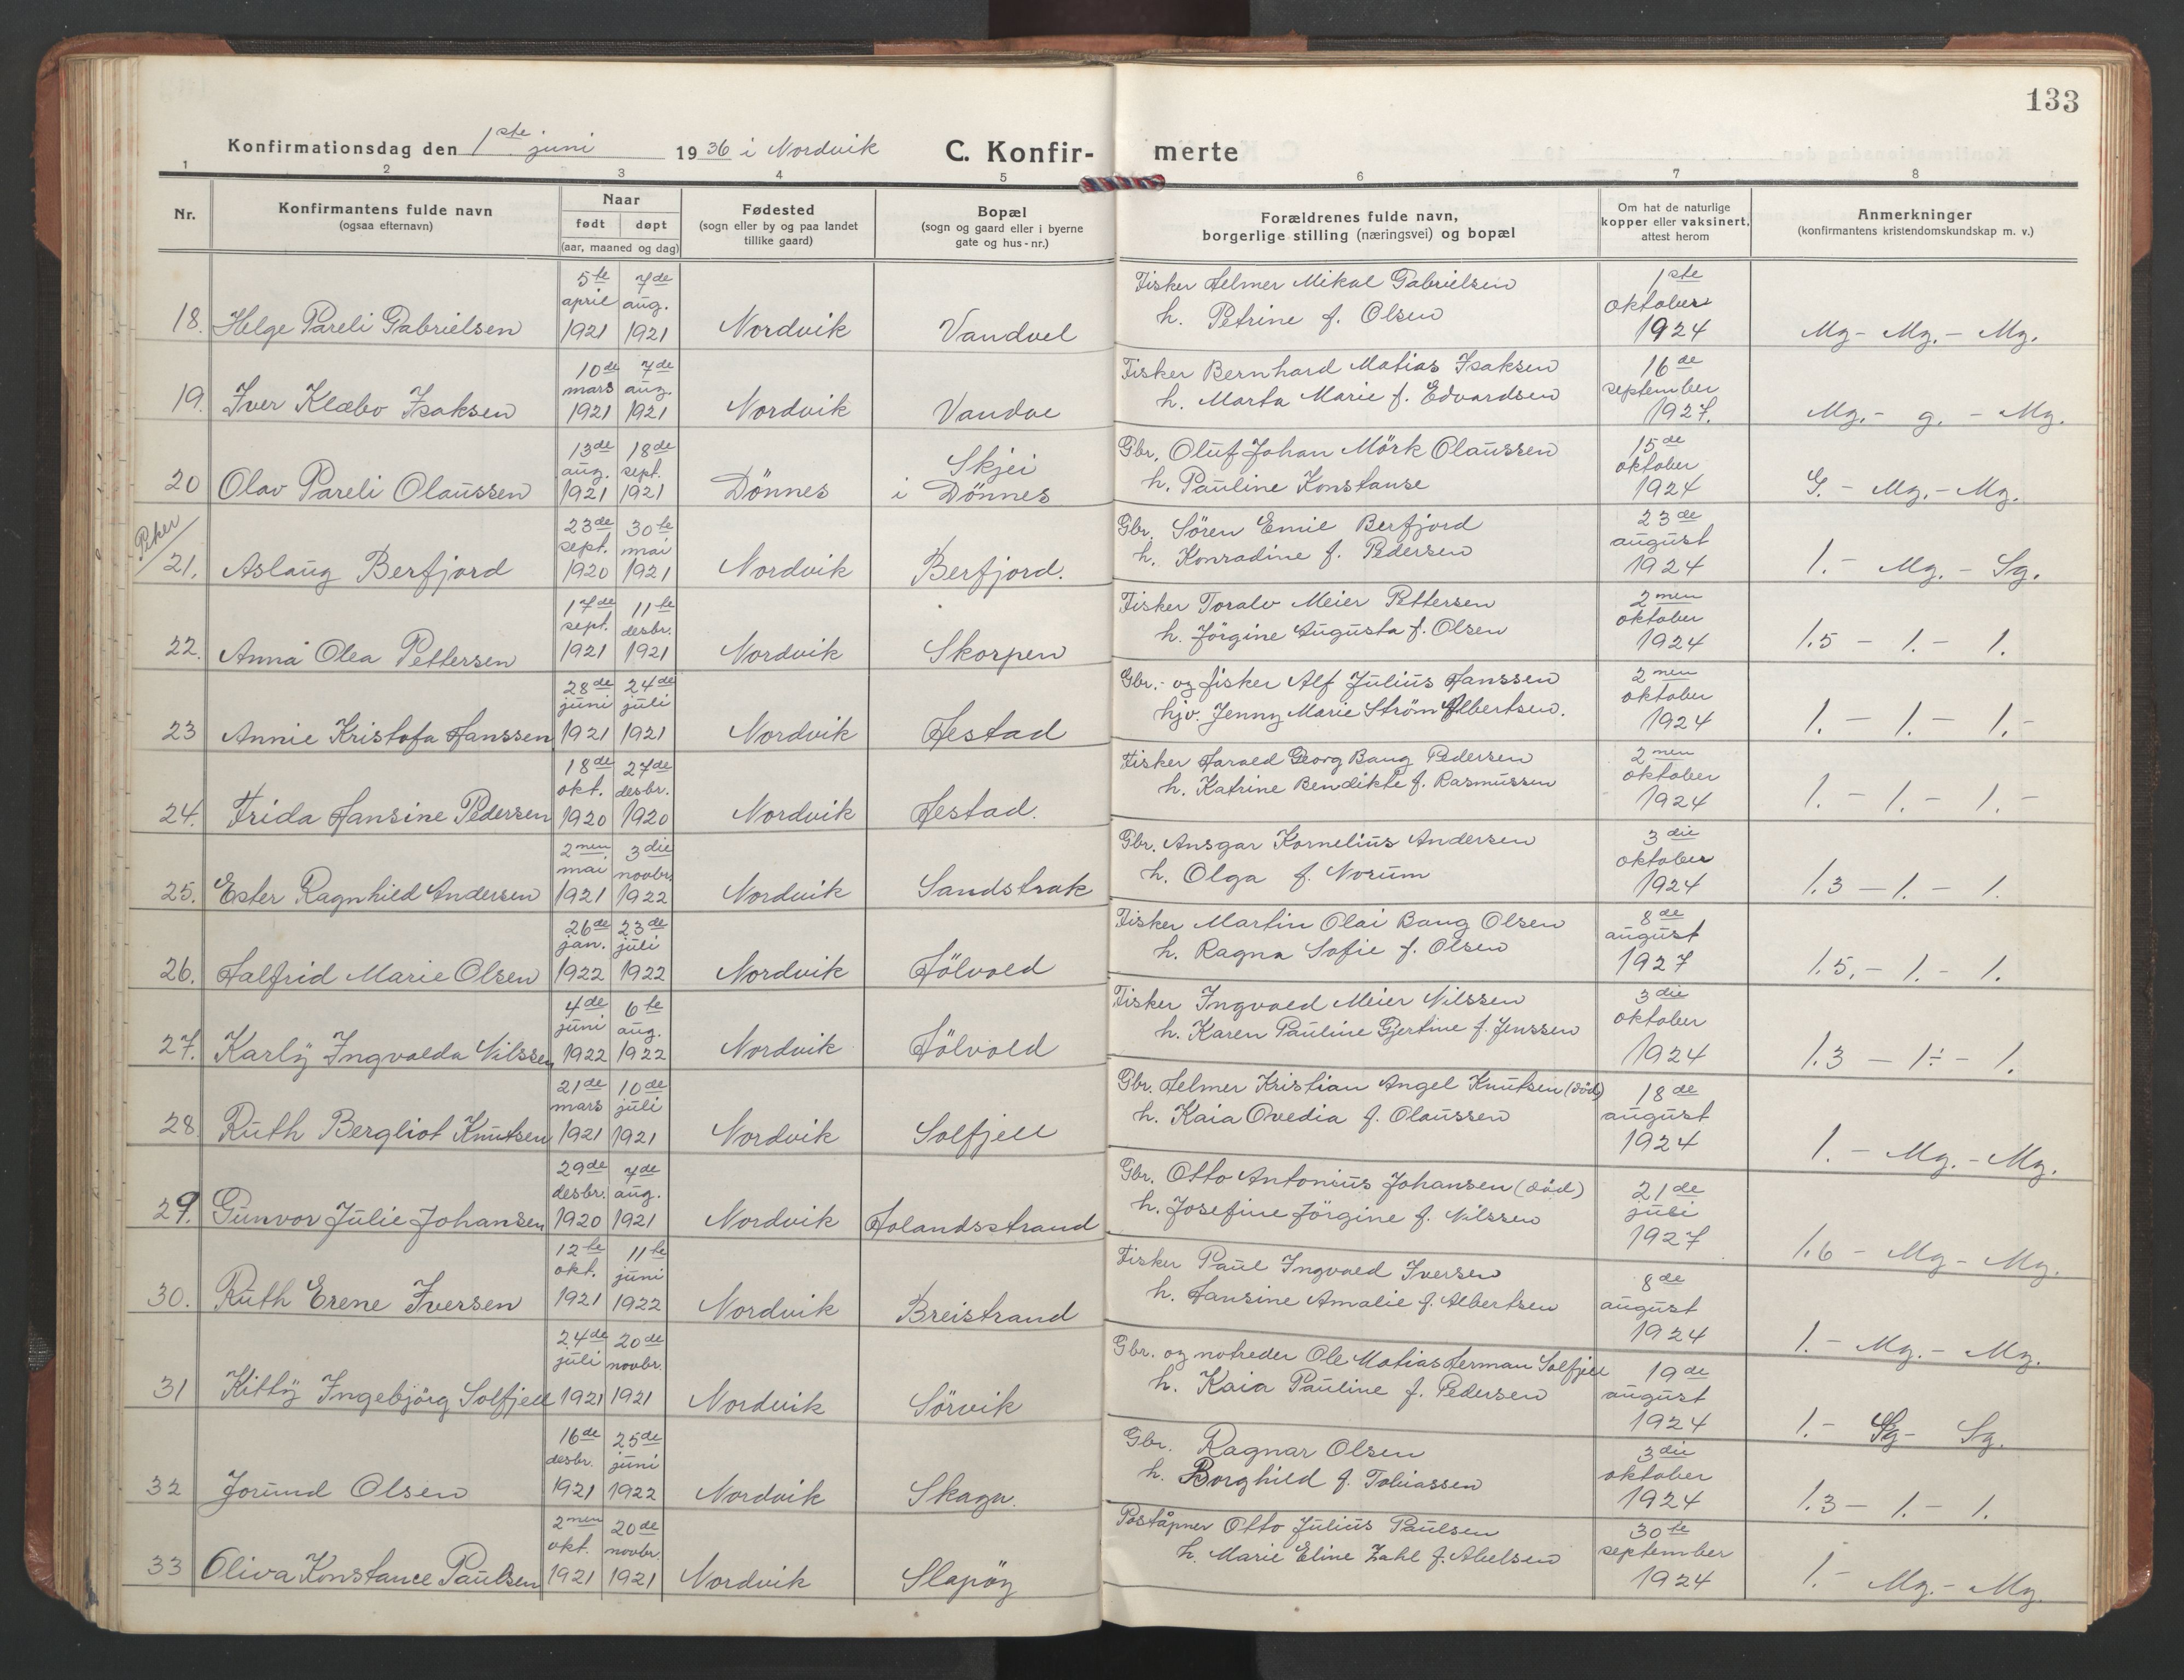 133
Konfirmationsdag den 1ste juni 1936 i Nordvik C. Konfir- merte
1 2 3 4 5 6 7 8
Nr. Konfirmantens fulde navn (ogsaa efternavn) Naar født døpt (aar, maaned og dag) Fødested (sogn eller by og paa landet tillike gaard) Bopæl (sogn og gaard eller i byerne gate og hus-nr.) Forældrenes fulde navn, borgerlige stilling (næringsvei) og bopæl Om hat de naturlige kopper eller vaksinert, attest herom Anmerkninger (konfirmantens kristendomskundskap m. v.)
18. Helge Pareli Gabrielsen 5te april 1921 7de aug. 1921 Nordvik Vandvel Fisker Helmer Mikal Gabrielsen h. Petrine f. Olsen 1ste oktober 1924 Mg - Mg. - Mg.
19. Iver Klæbo Isaksen 10de mars 1921 7de aug. 1921 Nordvik Vandve Fisker Bernhard Matias Isaksen h. Marta Marie f. Edvardsen 16de september 1927. Mg. - g. - Mg.
20 Olav Pareli Olaussen 13de aug. 1921 18de sept. 1921 Dönnes Skjei i Dönnes Gbr. Oluf Johan Mörk Olaussen h. Pauline Konstanse 15de oktober 1924 G. - Mg. - Mg.
Peker
21. Aslaug Berfjord 23de sept. 1920 30te mai 1921 Nordvik Berfjord. Gbr. Sören Emil Berfjord h. Konradine f. Pedersen 23de august 1924 1. - Mg. - Sg.
22. Anna Olea Pettersen 17de sept. 1921 11te desbr. 1921 Nordvik Skorpen Fisker Toralv Meier Pettersen h. Jörgine Augusta f. Olsen 2men oktober 1924 1.5 - 1. - 1.
23 Annie Kristofa Hanssen 28de juni 1921 24de juli 1921 Nordvik Hestad Gbr. - og fisker Alf Julius Hanssen hjv. Jenny Marie Strøm f. Albertsen. 2men oktober 1924 1. - 1. - 1. -
24. Frida Hansine Pedersen 18de okt. 1920 27de desbr. 1920 Nordvik Hestad. Fisker Harald Georg Bang Pedersen h. Katrine Bendikte f. Rasmussen 2men oktober 1924 1. - 1. - 1. -
25. Ester Ragnhild Andersen 2men mai 1921 3die novbr. 1922 Nordvik Sandstrak Gbr. Ansgar Kornelius Andersen h. Olga f. Norum 3die oktober 1924 1.3 - 1. - 1.
26. Halfrid Marie Olsen 26de jan. 1922 23de juli 1922 Nordvik Hölvold Fisker Martin Olai Bang Olsen h. Ragna Sofie f. Olsen 8de august 1927 1.5. - 1. - 1.
27. Karly Ingvalda Nilssen 4de juni 1922 6te aug. 1922 Nordvik Hölvold Fisker Ingvald Meier Nilssen h. Karen Pauline Gjertine f. Jenssen 3die oktober 1924 1.3 - 1÷ - 1.
28 Ruth Bergliot Knutsen 21de mars 1921 10de juli 1921 Nordvik Solfjell Gbr. Helmer Kristian Angel Knutsen (död) h. Kaia Ovedia f. Olaussen 18de august 1924 1. - Mg. - Mg.
29. Gunvor Julie Johansen 29de desbr. 1920 7de aug. 1921 Nordvik Holandsstrand Gbr. Otto Antonius Johansen (död) h. Josefine Jörgine f. Nilssen 21de juli 1927 1.6 - Mg - Mg.
30. Ruth Erene Iversen 12te okt. 1921 11te juni 1922 Nordvik Breistrand Fisker Paul Ingvald Iversen h. Hansine Amalie f. Albertsen 8de august 1924 1. - Mg. - Mg.
31 Kitty Ingebjörg Solfjell 24de juli 1921 20de novbr. 1921 Nordvik Sörvik Gbr. og notreder Ole Matias Herman Solfjell h. Kaia Pauline f. Pedersen 19de august 1924 1. - Sg - Sg.
32 Jorund Olsen 16de desbr. 1921 25de juni 1922 Nordvik Skaga. Gbr. Ragnar Olsen h. Borghild f. Tobiassen 3die oktober 1924 1.3 - 1. - 1.
33 Oliva Konstance Paulsen 2men okt. 1921 20de novbr. 1921 Nordvik Slapöy Poståpner Otto Julius Paulsen h. Marie Eline Zahl f. Abelsen 30te september 1924 1. - Mg. - Mg.